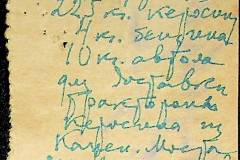 225 кг. керосину
4 кг. бензина
10 кг. автола
для доставки
тракторами
керосина из
Камен. Моста